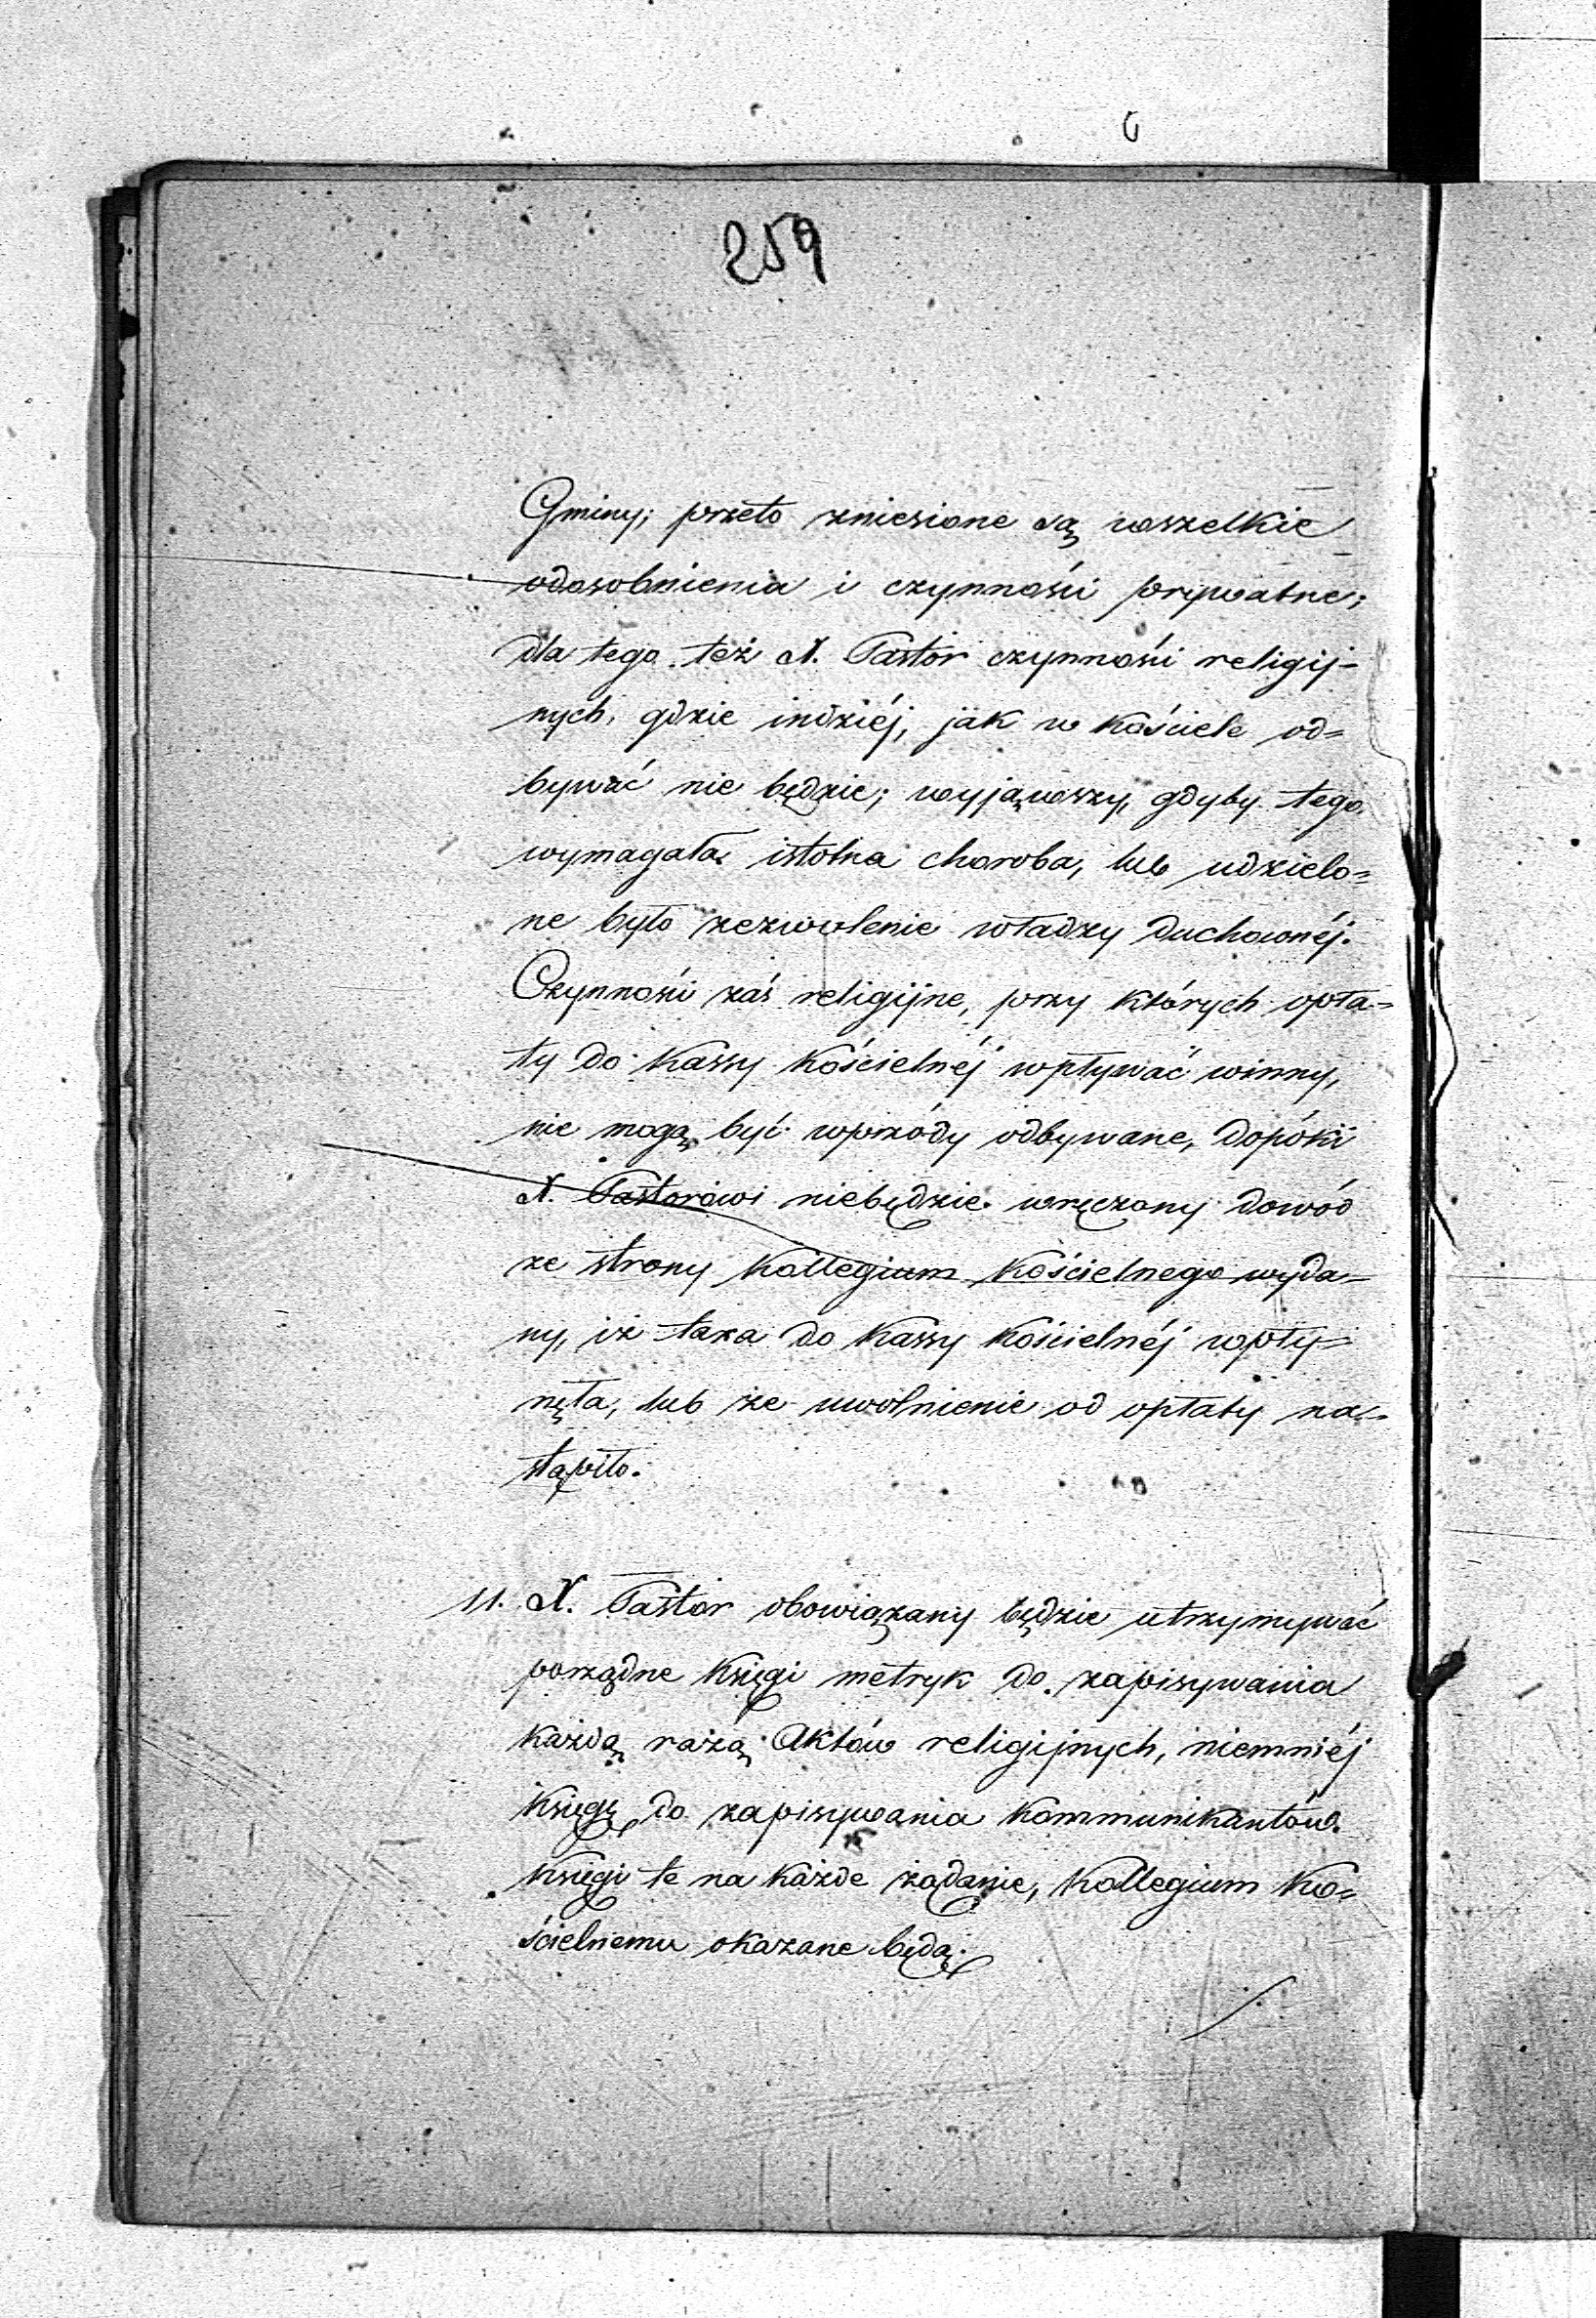 259
Gminy; przeto zniesione są wszelkie
odosobnienia i czynności prywatne;
dla tego też N. Pastor czynności religij-
nych, gdzie indziéj, jak w kościele od=
bywać nie będzie; wyjąwszy, gdyby tego
wymagała istotna choroba, lub udzielo=
ne było zezwolenie władzy duchownéj.
Czynności zaś religijne, przy których opła=
ty do kassy kościelnéj wpływać winny,
nie mogą być wprzódy odbywane, dopóki
N. Pastorowi niebędzie wręczony dowód
ze strony Kollegium Kościelnego wyda=
ny, iż taxa do kassy kościelnéj wpły=
nęła, lub że uwolnienie od opłaty na=
stąpiło.
11. N. Pastor obowiązany będzie utrzymywać
porządne księgi metryk do zapisywania
każdą rażą Aktów religijnych, niemniéj
księgę do zapisywania kommunikantów.
księgi te na każde żądanie, Kollegium Ko=
ścielnemu okazane będą.